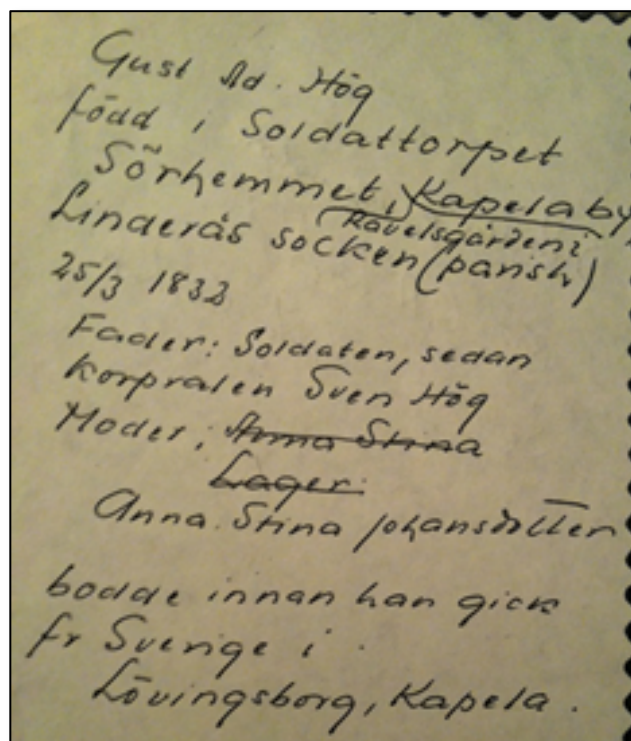 Gust Ad. Hög
född i Soldattorpet
Sörhemmet, Kapela by
Ravelsgården i
Linderås socken (parish)
25/3 1832
Fader: Soldaten, sedan
korpralen Sven Hög
Moder: Anna Stina
Lager
Anna Stina Johansdotter
bodde innan han gick
fr Sverige i
Lövingsborg, Kapela.